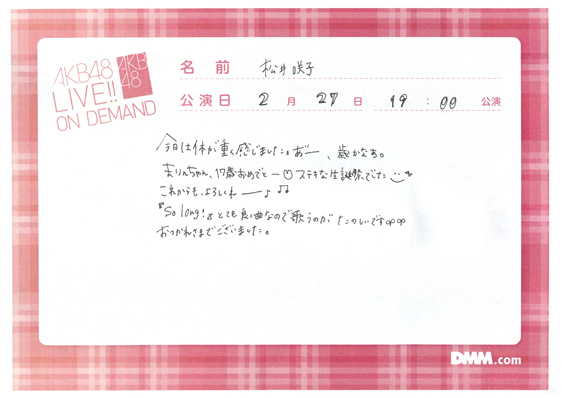 AKB48
LIVE!!
ON DEMAND
AKB
48
名 前 松井咲子
公演日 2 月 27 日 19 : 00 公演
今日は体が重く感じました。あ゛ー、歳かなぁ。
まりんちゃん、17歳おめでとー♡ステキな生誕祭でした
これからも、よろしくねー♪♫
『So long!』とても良い曲なので歌うのがたのしいです∞∞
おつかれさまでございました。
DMM.com